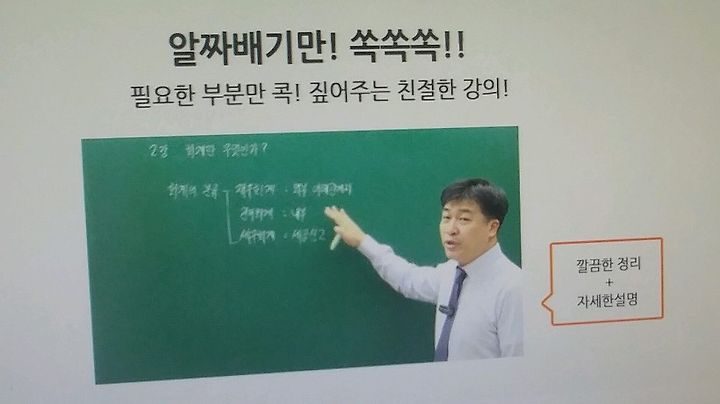 알짜배기만! 쏙쏙쏙!!
필요한 부분만 콕! 짚어주는 친절한 강의!
2강 회계란 무엇인가?
회계의 분류 재무회계 : 외부 이해관계자
관리회계 : 내부
세무회계 : 세금신고
깔끔한 정리
+
자세한설명